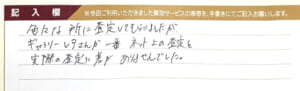 記入欄 ※今回ご利用いただきました買取サービスの感想を、手書きにてご記入お願いします。
色んな所に査定してもらいましたが
ギャラリーレアさんが一番ネット上の査定と
実際の査定に差がありませんでした。